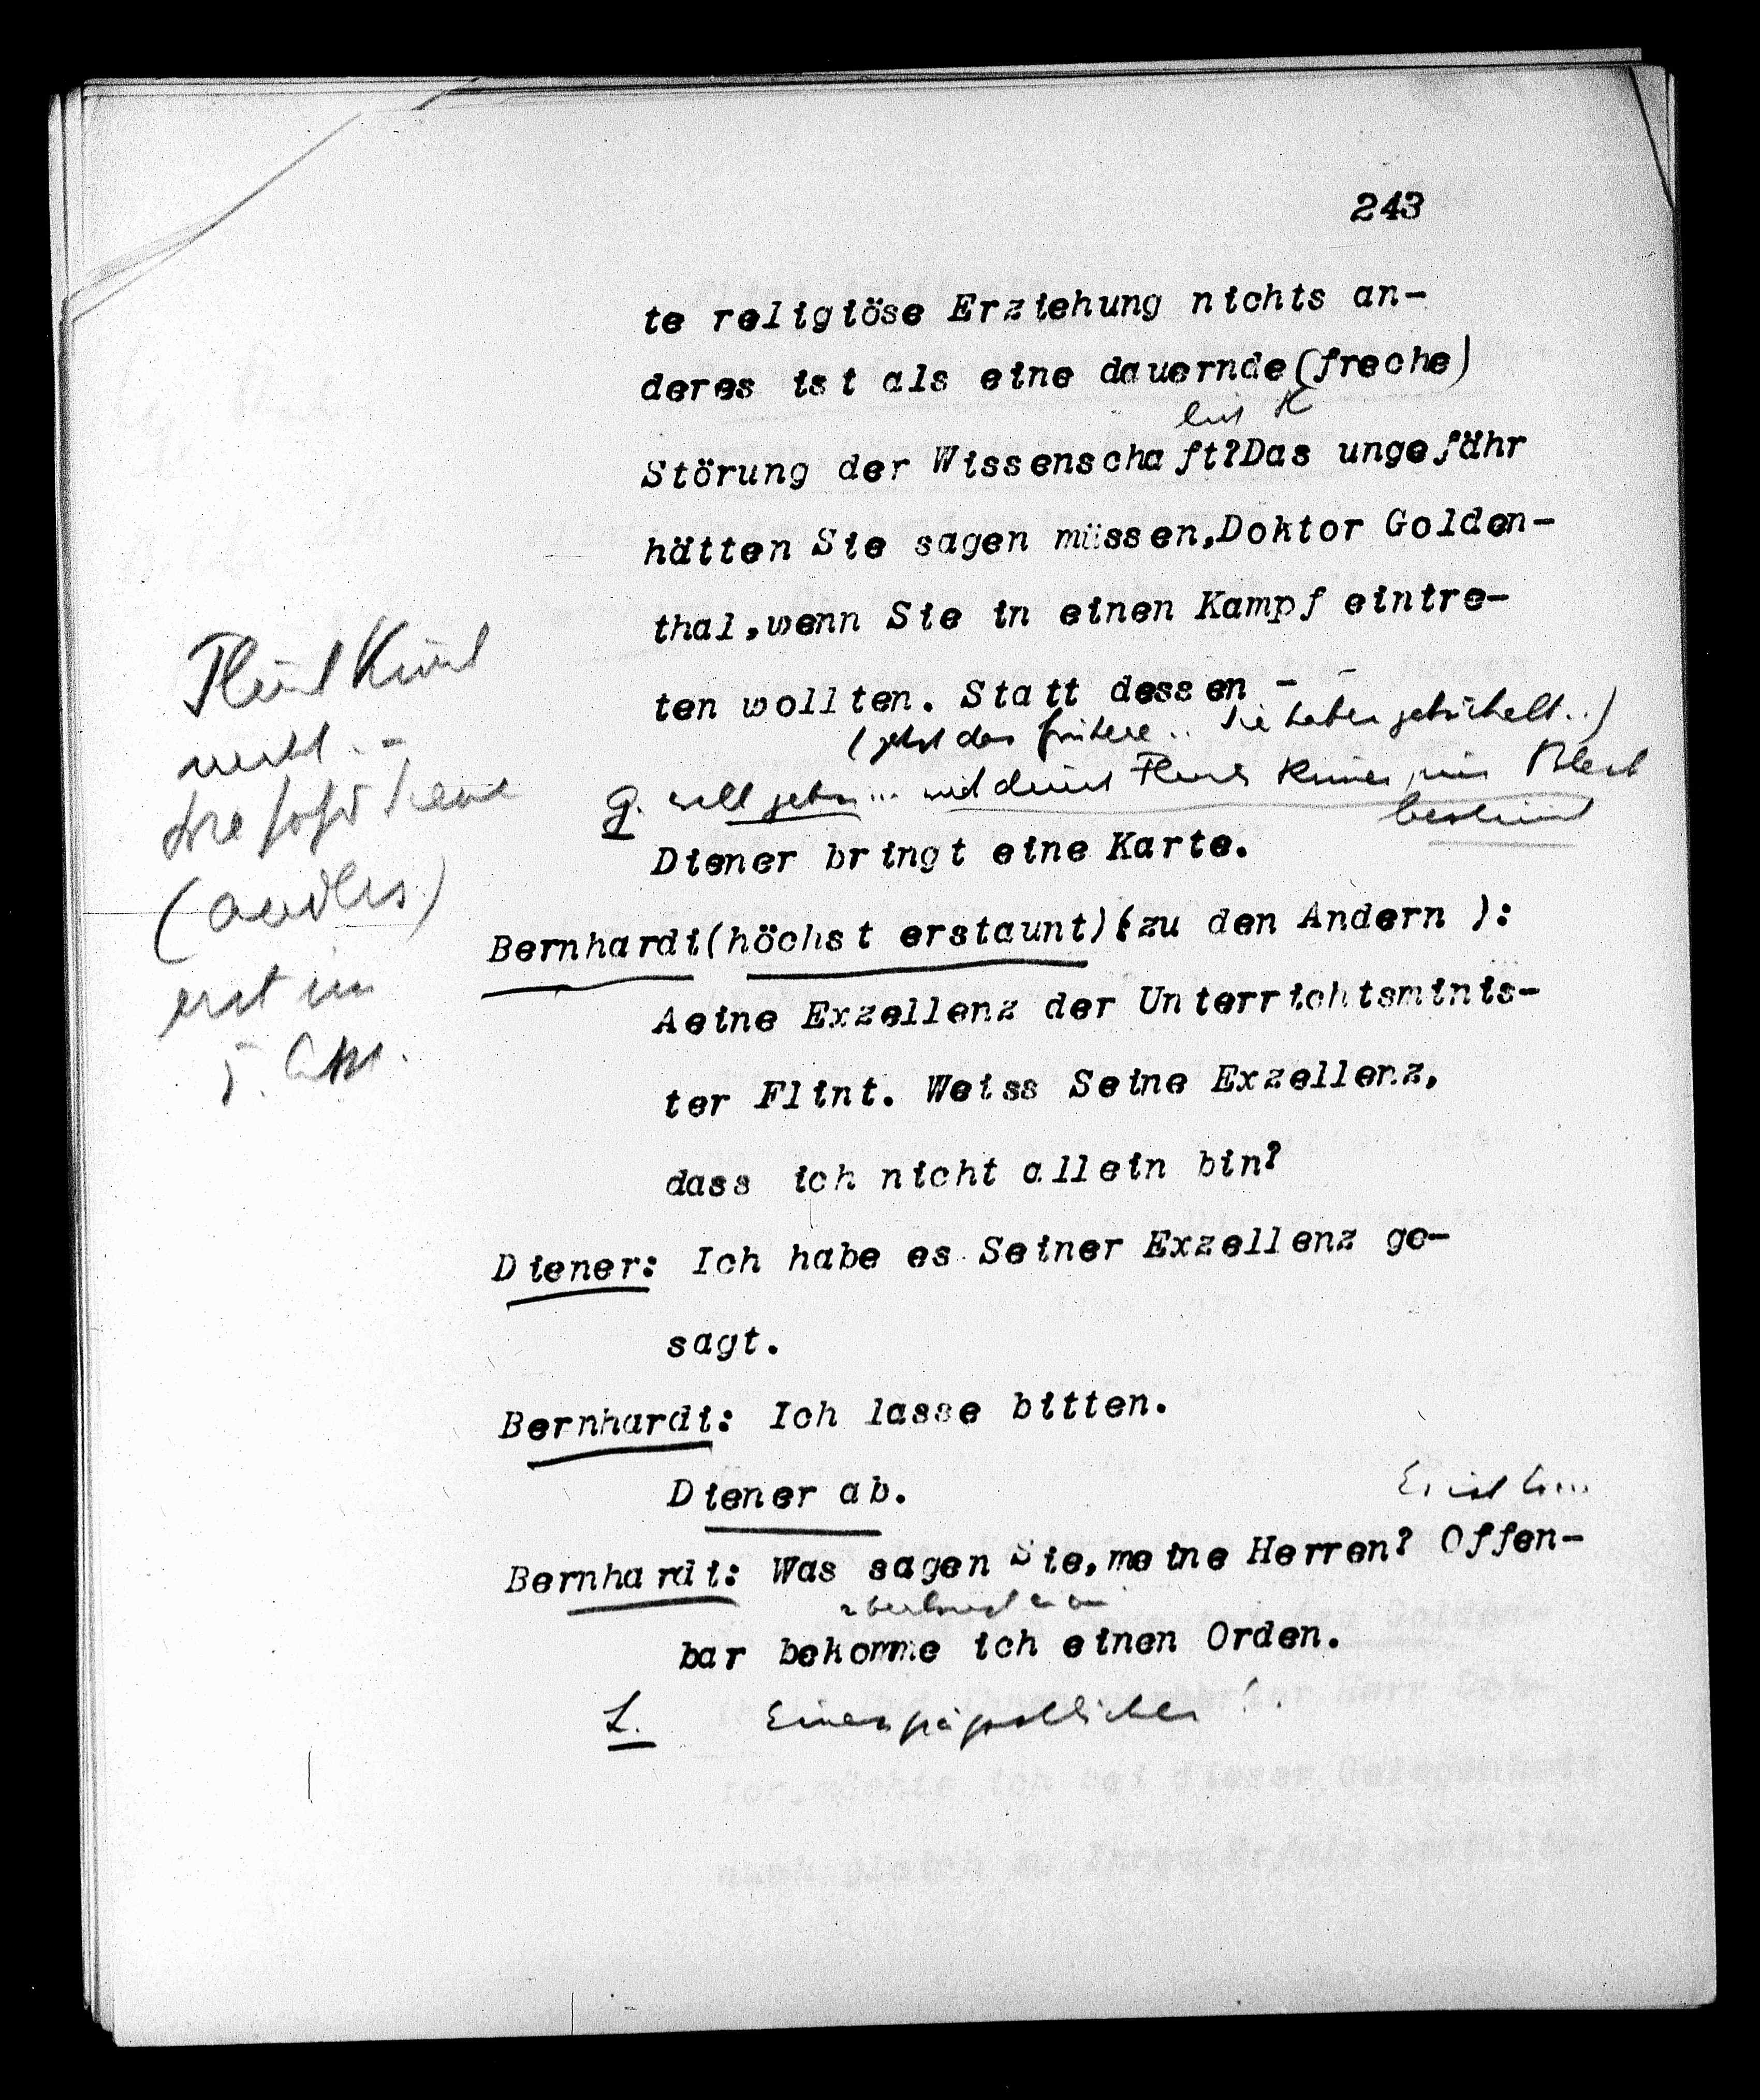 243
te religiöse Erziehung nichts an-
deres ist als eine dauernde(freche)
Störung der Wissenschaft?Das ungefähr
hätten Sie sagen müssen,Doktor Golden-
thal,wenn Sie in einen Kampf eintre-
ten wollten. Statt dessen -
(jetzt das frühere .. Sie haben gebüchelt..)
G. will gehn ...
Diener bringt eine Karte.
Bernhardi(höchst erstaunt)(zu den Andern ):
Aeine Exzellenz der Unterrichtsminis-
ter Flint. Weiss Seine Exzellenz,
dass ich nicht allein bin?
Diener: Ich habe es Seiner Exzellenz ge-
sagt.
Bernhardi: Ich lasse bitten.
Diener ab.
Bernhardi: Was sagen Sie,meine Herren? Offen-
bar bekomme ich einen Orden.
L. Einen päpstlichen !.
Flint
(anders)
erst im
5. Akt.